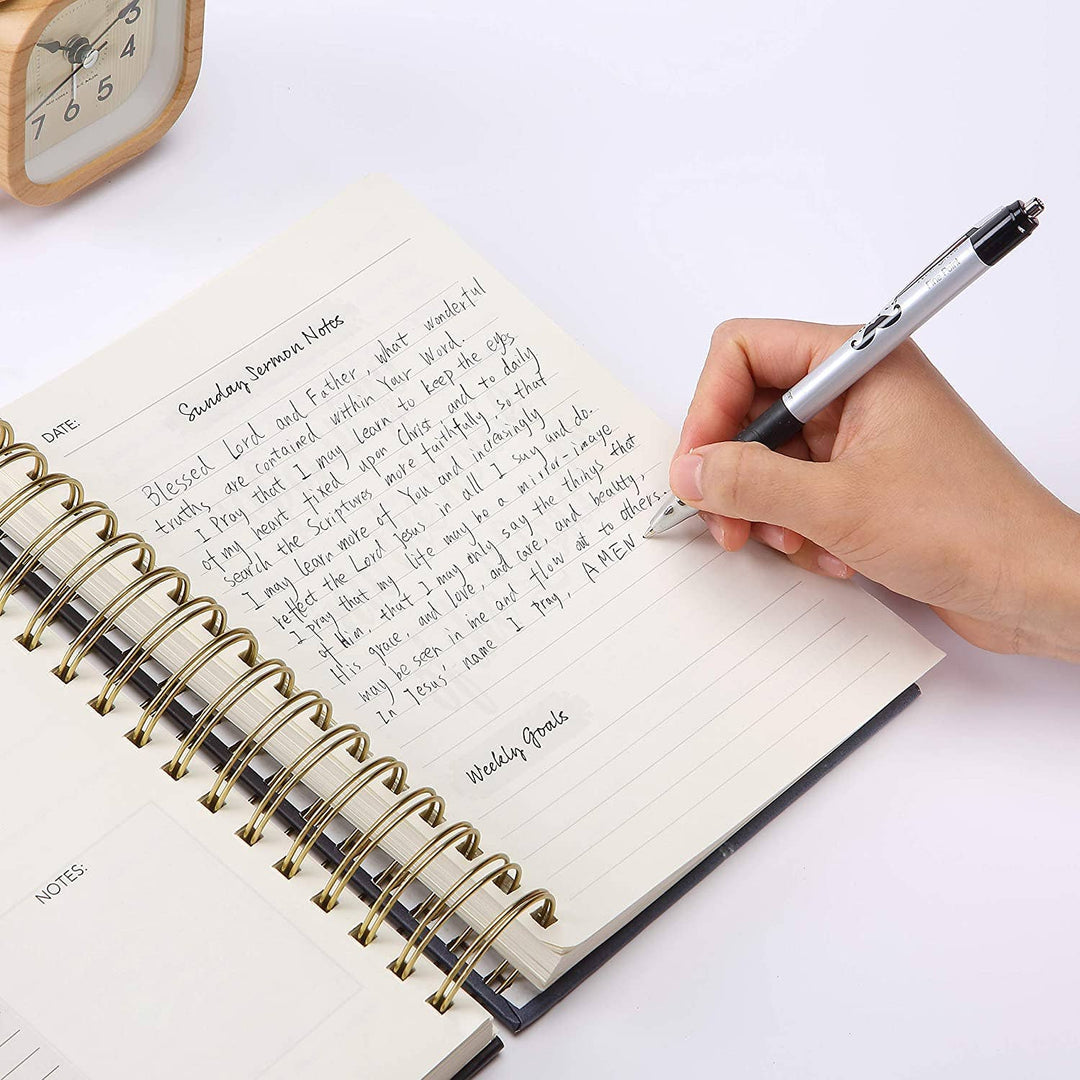 3
4
5
6
7
DATE:
Sunday Sermon Notes
Blessed Lord and Father, what wonderful
truths are contained within Your Word.
I Pray that I may learn to keep the eyes
of my heart fixed upon Christ and to daily
search the Scriptures more faithfully so that
I may learn more of You and increasingly
reflect the Lord Jesus in all I say and do.
I pray that my life may be a mirror-image
of Him, that I may only say the things that
His grace, and love, and care, and beauty,
may be seen in me and flow out to others.
In Jesus' name I pray,
AMEN
Weekly Goals
NOTES:
Fine Point